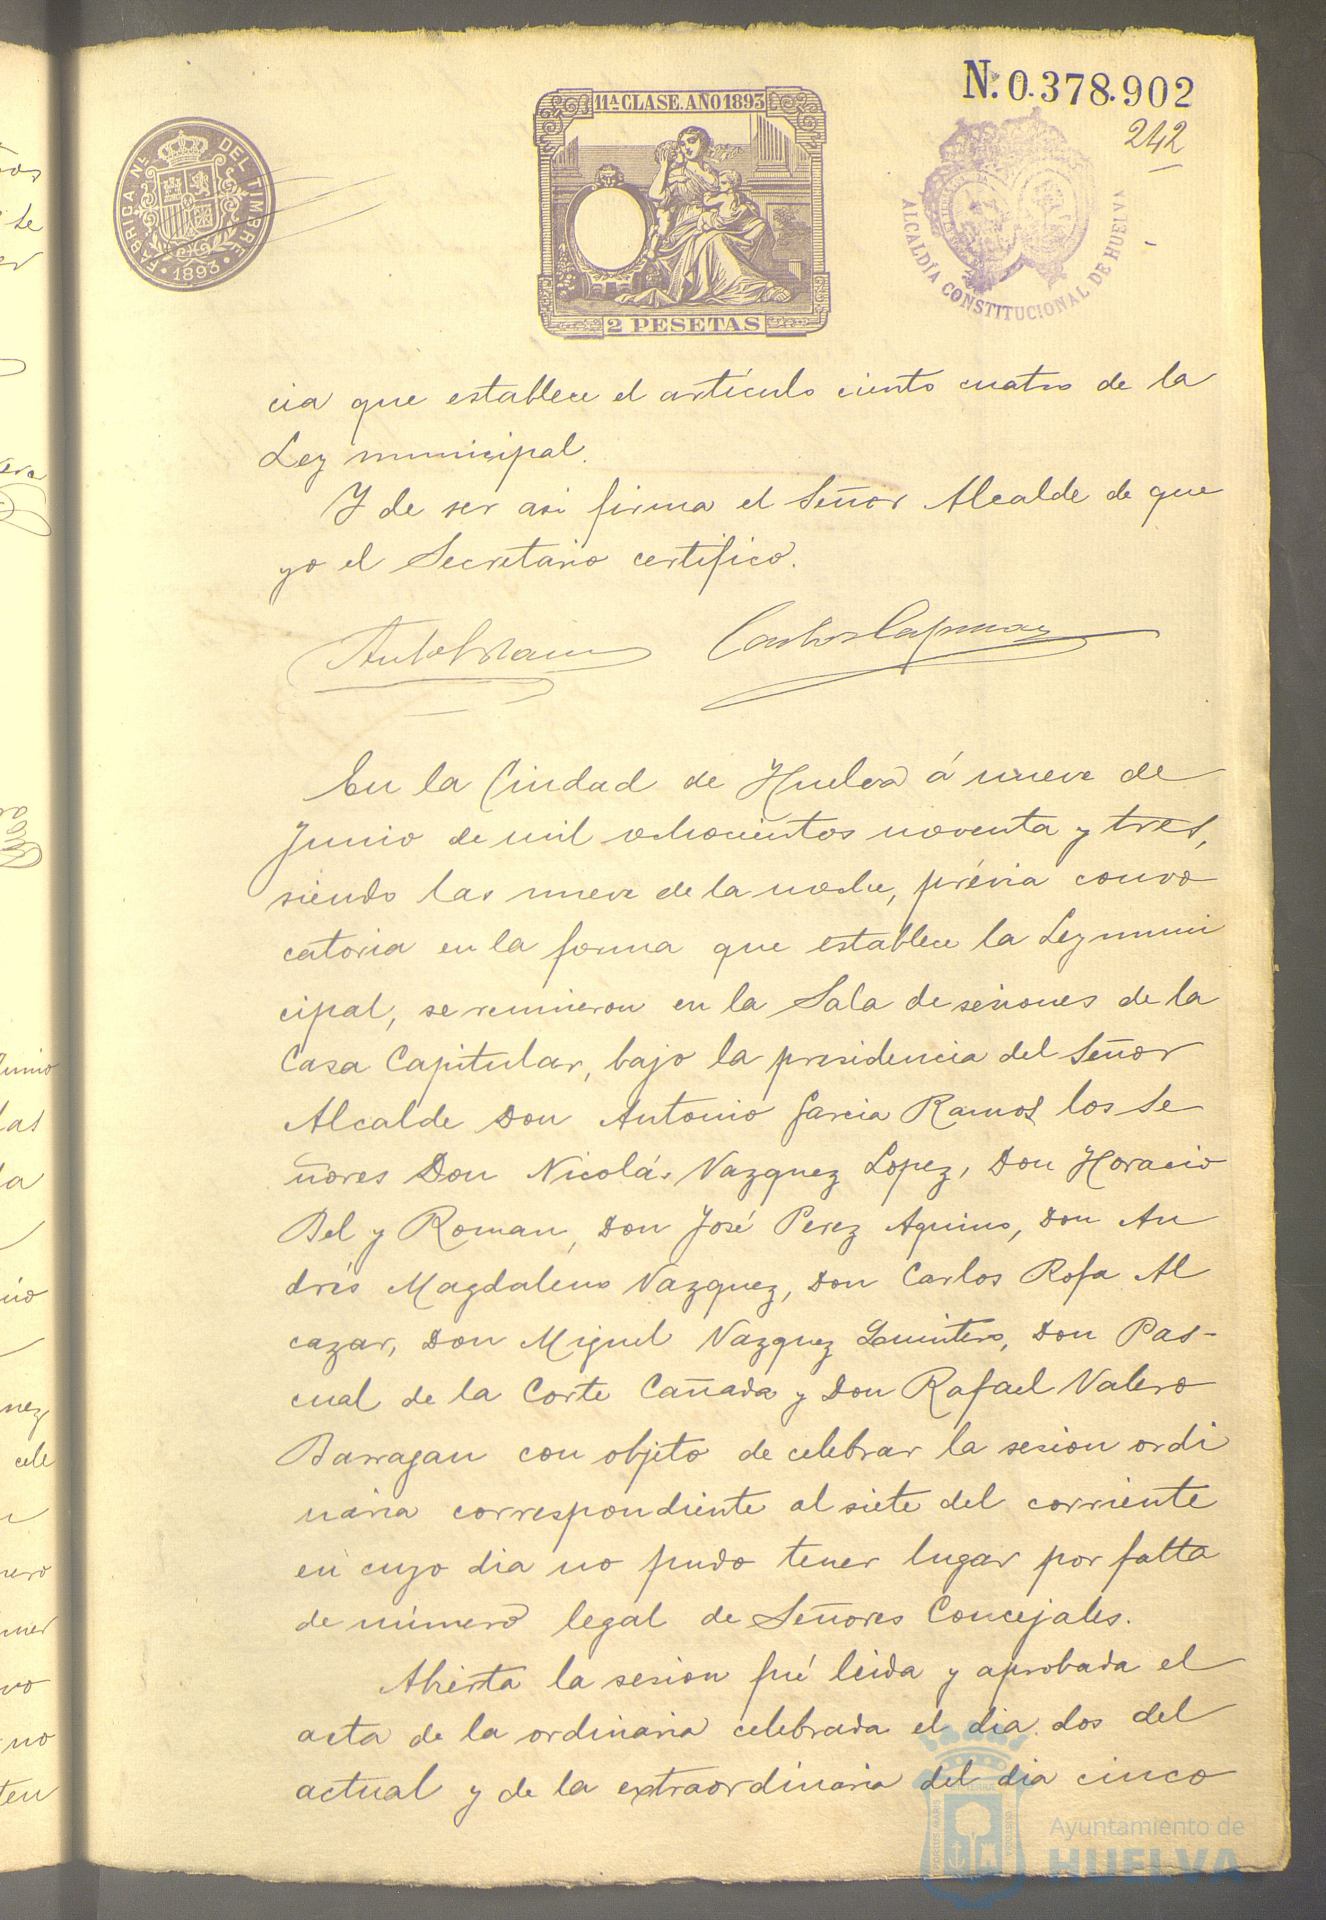 N. 0.378.902
242
11ª CLASE. AÑO 1893
FÁBRICA Nˡ. DEL TIMBRE
1893
2 PESETAS
ALCALDÍA CONSTITUCIONAL DE HUELVA
cia que establece el artículo ciento cuatro de la
Ley municipal.
Y de ser asi firma el Señor Alcalde de que
yo el Secretario certifico.
En la Ciudad de Huelva á nueve de
Junio de mil ochocientos noventa y tres,
siendo las nueve de la noche, prévia convo
catoria en la forma que establece la Ley muni
cipal, se reunieron en la Sala de sesiones de la
Casa Capitular, bajo la presidencia del Señor
Alcalde Don Antonio Garcia Ramos los Se
ñores Don Nicolás Vazquez Lopez, Don Horacio
Bel y Roman, Don José Perez Aquino, Don An
drés Magdaleno Vazquez, Don Carlos Rofa Al
cazar, Don Miguel Vazquez Quintero, Don Pas-
cual de la Corte Cañada y Don Rafael Valero
Barragan con objeto de celebrar la sesion ordi
naria correspondiente al siete del corriente
en cuyo dia no pudo tener lugar por falta
de número legal de Señores Concejales.
Abierta la sesion fué leida y aprobada el
acta de la ordinaria celebrada el dia dos del
actual y de la extraordinaria del dia cinco
Ayuntamiento de
HUELVA